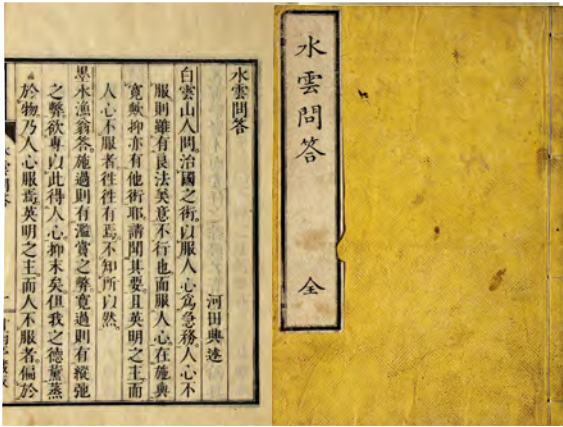 水雲問答
全
水雲問答
河田興述
白雲山人問。治國之術。以服人心爲急務。人心不
服則雖有良法美意不行也。而服人心在施與
寬歟抑亦有他術耶。請聞其要。且英明之主而
人心不服者徃徃有焉。不知所以然。
墨水漁翁答。施過則有濫賞之弊。寛過則有縱弛
之弊。欲專以此得人心抑末矣。但我之德薰蒸
於物乃人心服焉。英明之主而人不服者。偏於